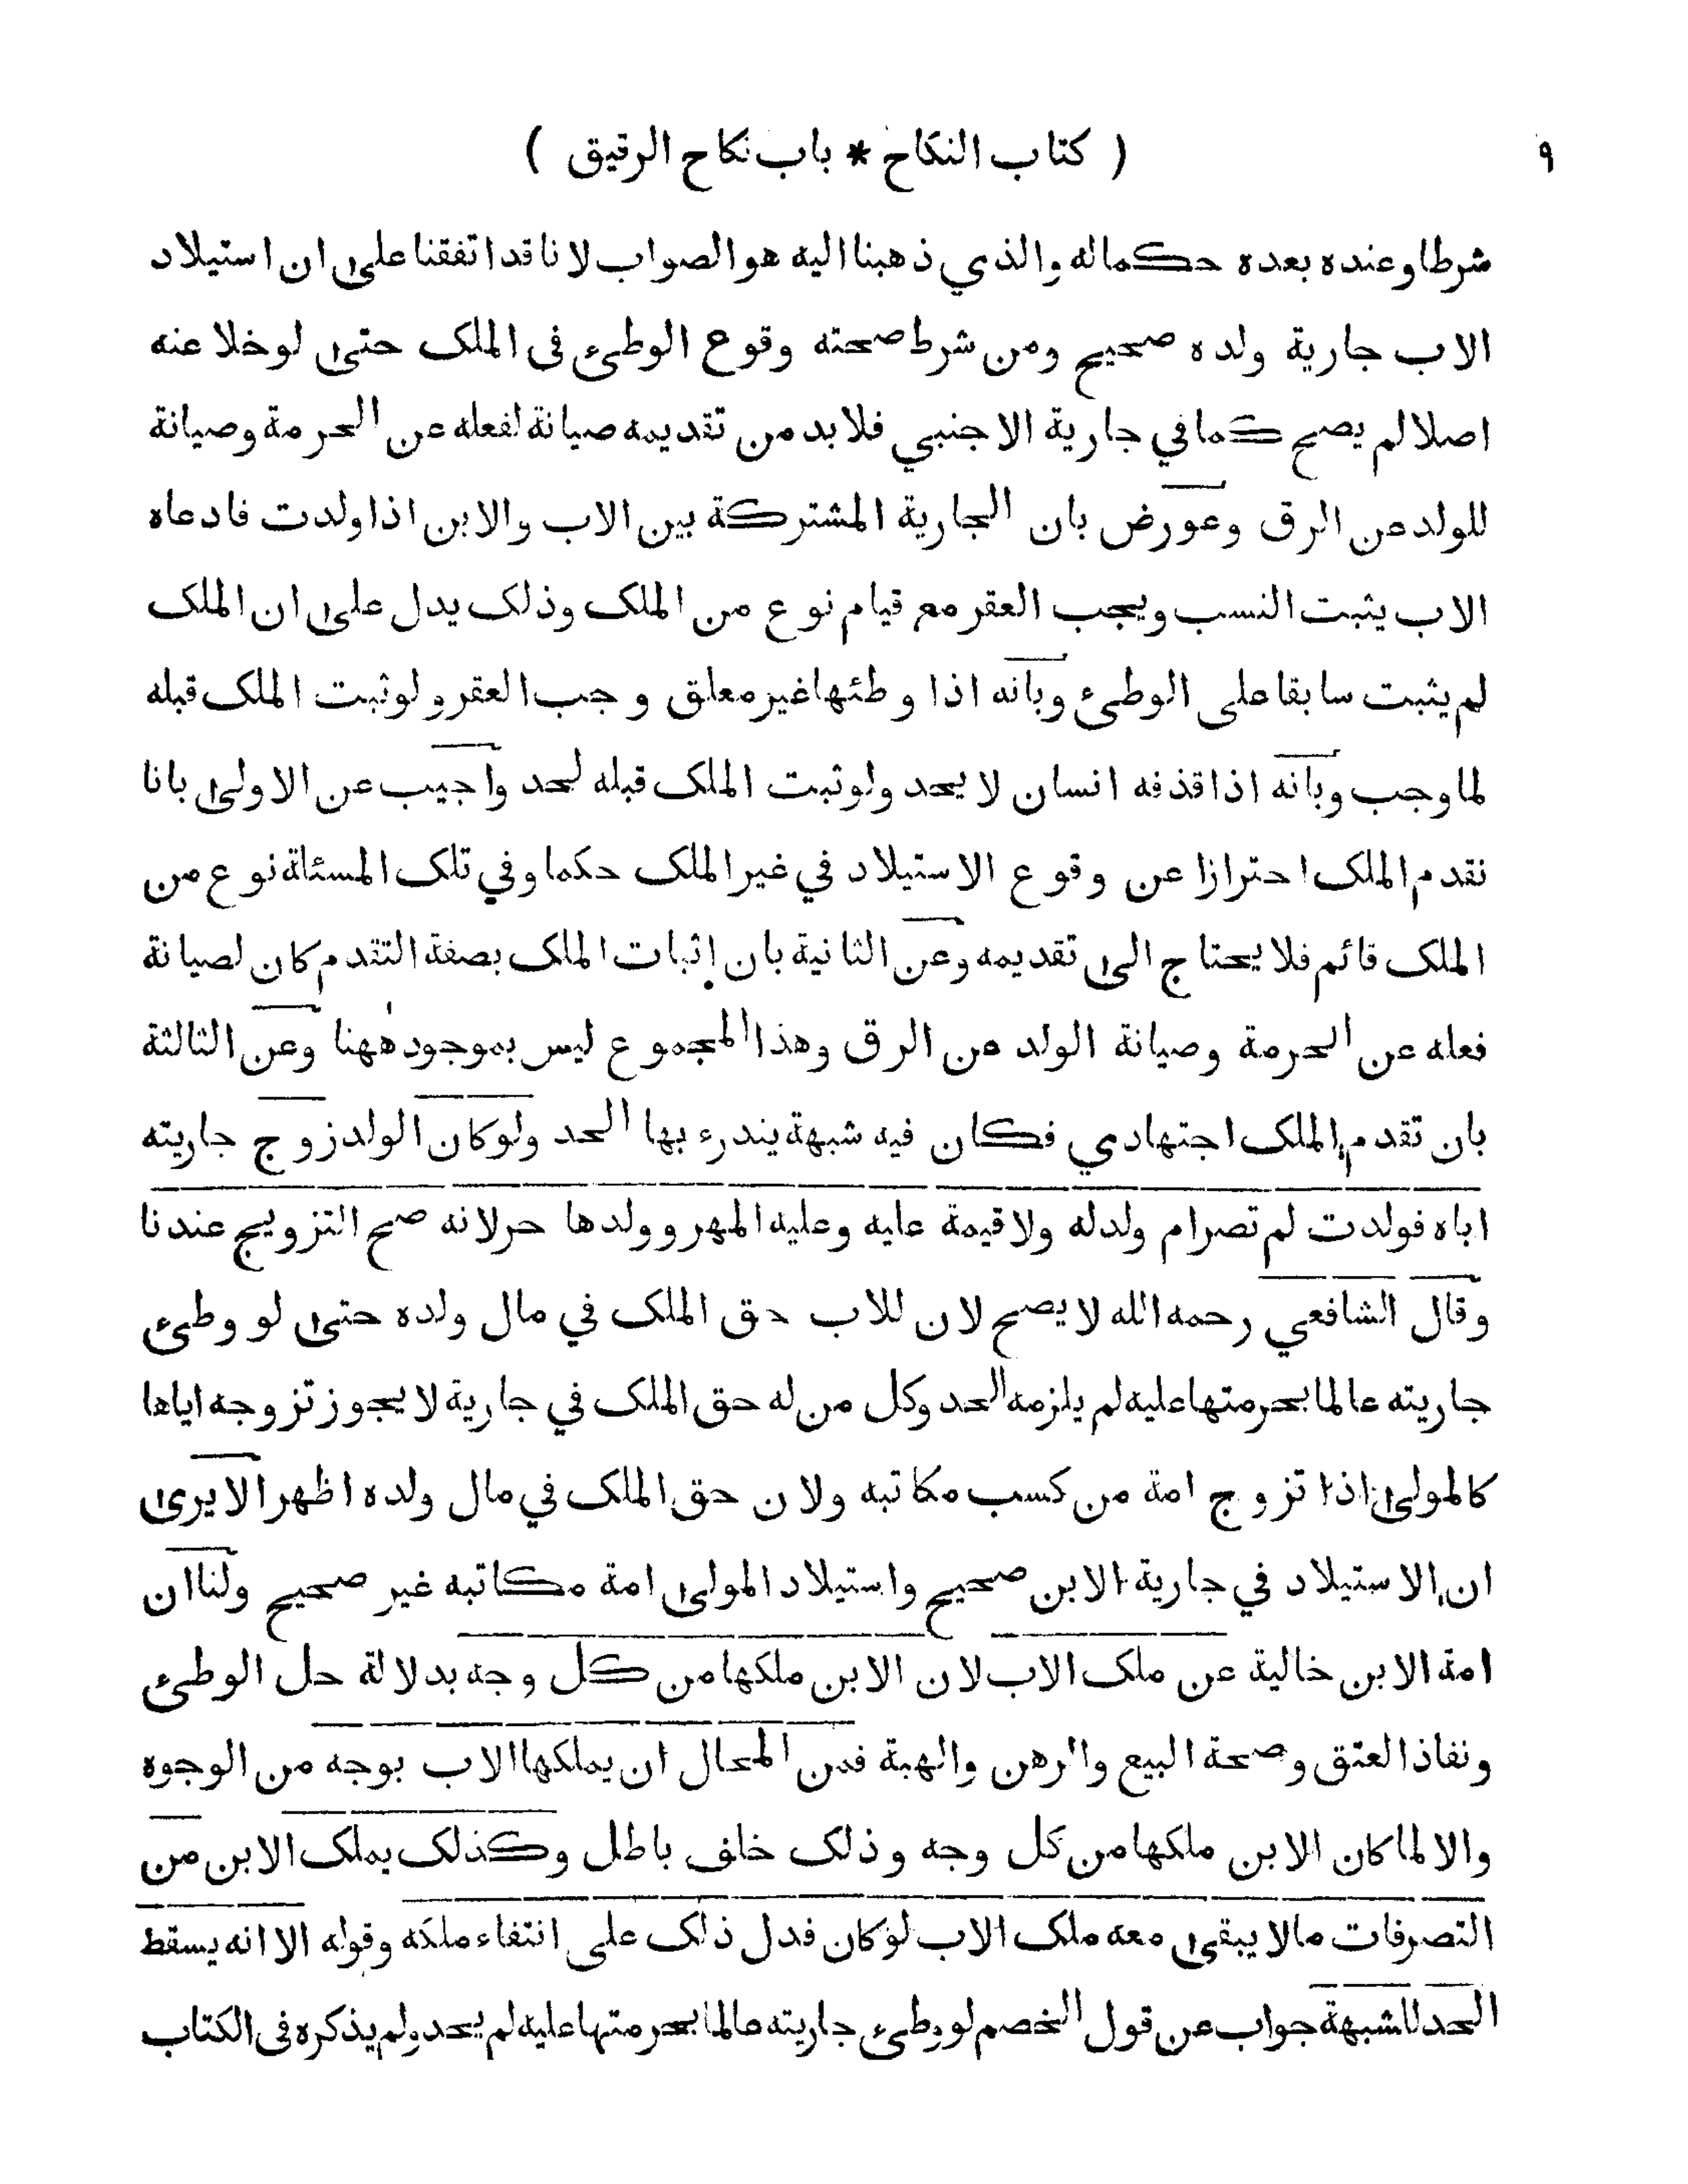 ٩ ( كتاب النكاح * باب نكاح الرقيق )
شرطا وعنده بعده حكما له والذي ذهبنا اليه هو الصواب لانا قد اتفقنا على ان استيلاد
الاب جارية ولده صحيح ومن شرط صحته وقوع الوطئ فى الملك حتى لو خلا عنه
اصلا لم يصح كما في جارية الاجنبي فلابد من تقديمه صيانة لفعله عن الحرمة وصيانة
للولد عن الرق وعورض بان الجارية المشتركة بين الاب والابن اذا ولدت فادعاه
الاب يثبت النسب ويجب العقر مع قيام نوع من الملك وذلك يدل على ان الملك
لم يثبت سابقا على الوطئ وبانه اذا وطئها غير معلق وجب العقر ولو ثبت الملك قبله
لما وجب وبانه اذا قذفه انسان لا يحد ولو ثبت الملك قبله لحد واجيب عن الاولى بانا
نقدم الملك احترازا عن وقوع الاستيلاد في غير الملك حكما وفي تلك المسئلة نوع من
الملك قائم فلا يحتاج الى تقديمه وعن الثانية بان اثبات الملك بصفة التقدم كان لصيانة
فعله عن الحرمة وصيانة الولد عن الرق وهذا المجموع ليس بموجود ههنا وعن الثالثة
بان تقدم الملك اجتهادي فكان فيه شبهة يندرء بها الحد ولو كان الولد زوج جاريته
اباه فولدت لم تصر ام ولد له ولا قيمة عليه وعليه المهر وولدها حر لانه صح التزويج عندنا
وقال الشافعي رحمه الله لا يصح لان للاب حق الملك في مال ولده حتى لو وطئ
جاريته عالما بحرمتها عليه لم يلزمه الحد وكل من له حق الملك في جارية لا يجوز تزوجه اياها
كالمولى اذا تزوج امة من كسب مكاتبه ولان حق الملك في مال ولده اظهر الا يرى
ان الاستيلاد في جارية الابن صحيح واستيلاد المولى امة مكاتبه غير صحيح ولنا ان
امة الابن خالية عن ملك الاب لان الابن ملكها من كل وجه بدلالة حل الوطئ
ونفاذ العتق وصحة البيع والرهن والهبة فمن المحال ان يملكها الاب بوجه من الوجوه
والا لما كان الابن ملكها من كل وجه وذلك خلف باطل وكذلك يملك الابن من
التصرفات مالا يبقى معه ملك الاب لو كان فدل ذلك على انتفاء ملكه وقوله الا انه يسقط
الحد للشبهة جواب عن قول الخصم لو وطئ جاريته عالما بحرمتها عليه لم يحد ولم يذكره فى الكتاب